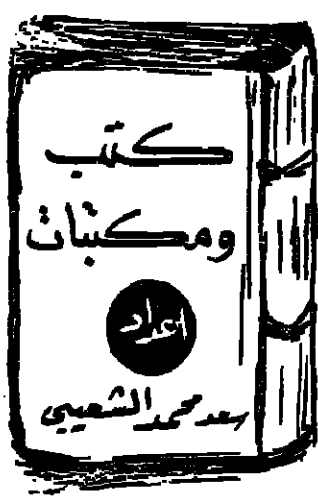 كتب
ومكتبات
اعداد
سعد محمد الشعيبي